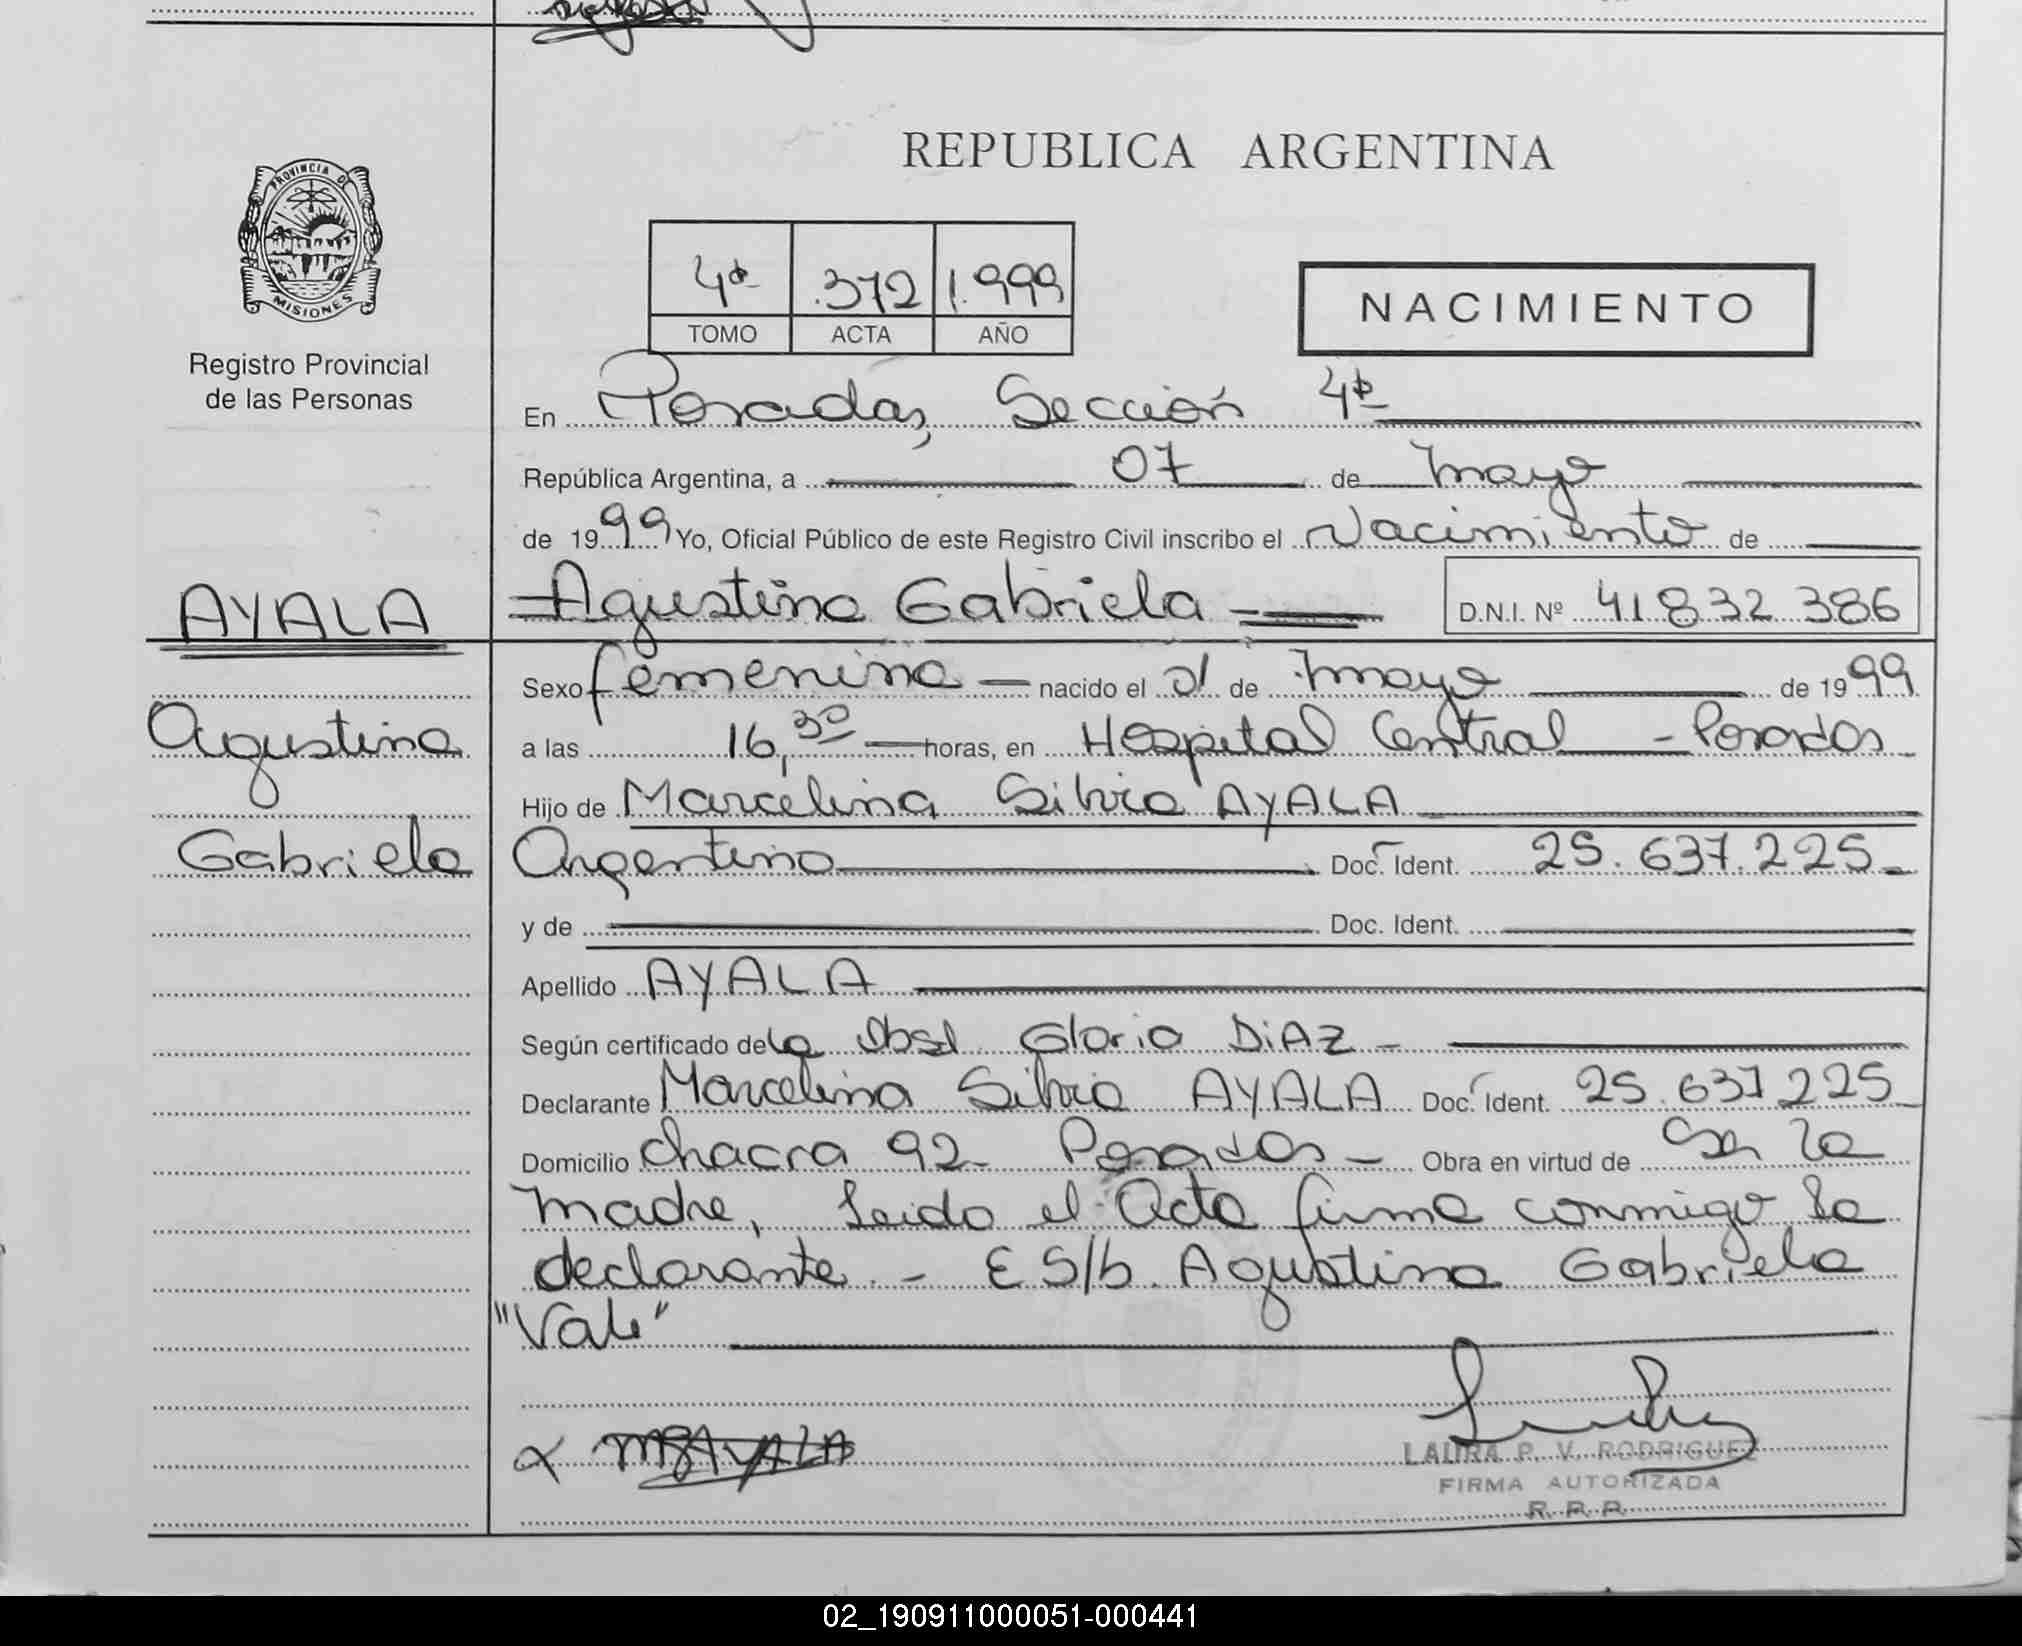 REPUBLICA ARGENTINA
PROVINCIA DE
MISIONES
Registro Provincial
de las Personas
4ª 372 1.999
TOMO ACTA AÑO
NACIMIENTO
En Posadas, Sección 4ª
República Argentina, a 07 de mayo
de 1999 Yo, Oficial Público de este Registro Civil inscribo el Nacimiento de
AYALA
Agustina Gabriela D.N.I. Nº 41.832.386
Agustina
Gabriela
Sexo femenina nacido el 01 de mayo de 1999
a las 16,30 horas, en Hospital Central - Posadas
Hijo de Marcelina Silvia AYALA
Argentina Doc. Ident. 25.637.225
y de Doc. Ident.
Apellido AYALA
Según certificado de la Obst. Gloria DIAZ -
Declarante Marcelina Silvia AYALA Doc. Ident. 25.637.225
Domicilio chacra 92 - Posadas - Obra en virtud de ser la
madre, Leida el Acta firma conmigo la
declarante. - E S/b. Agustina Gabriela
"Vale"
M S AYALA
LAURA P. V. RODRIGUEZ
FIRMA AUTORIZADA
R. P. P.
02_190911000051-000441